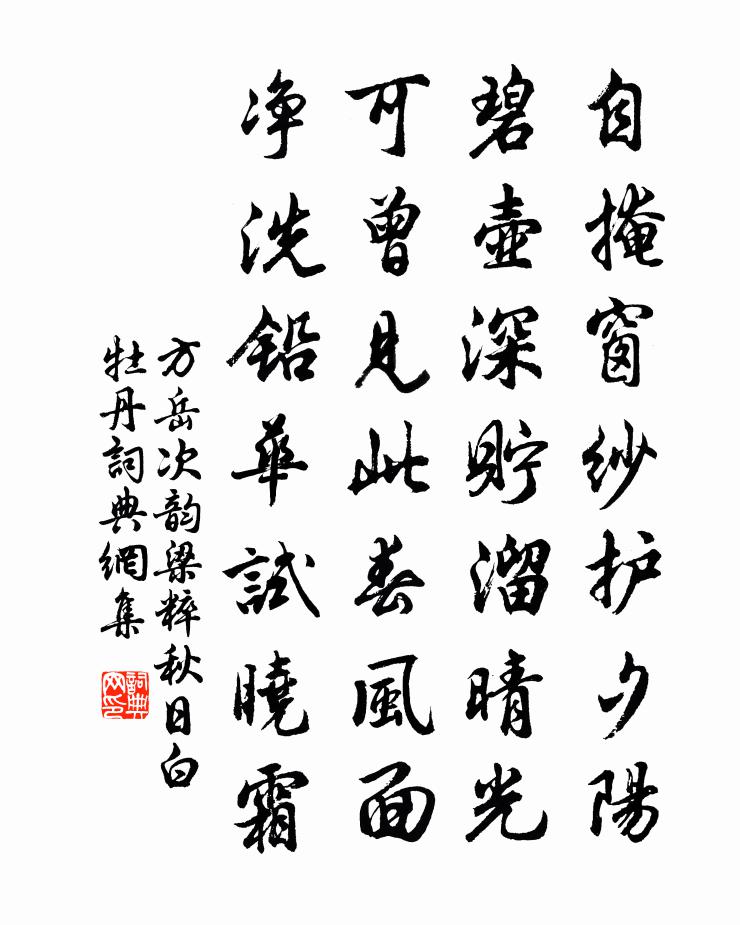 自掩窗纱护夕陽
碧壺深貯溜晴光
可曾見此春風面
净洗鉛華試曉霜
方岳次韵梁粹秋日白
牡丹詞典網集
詞典
网印